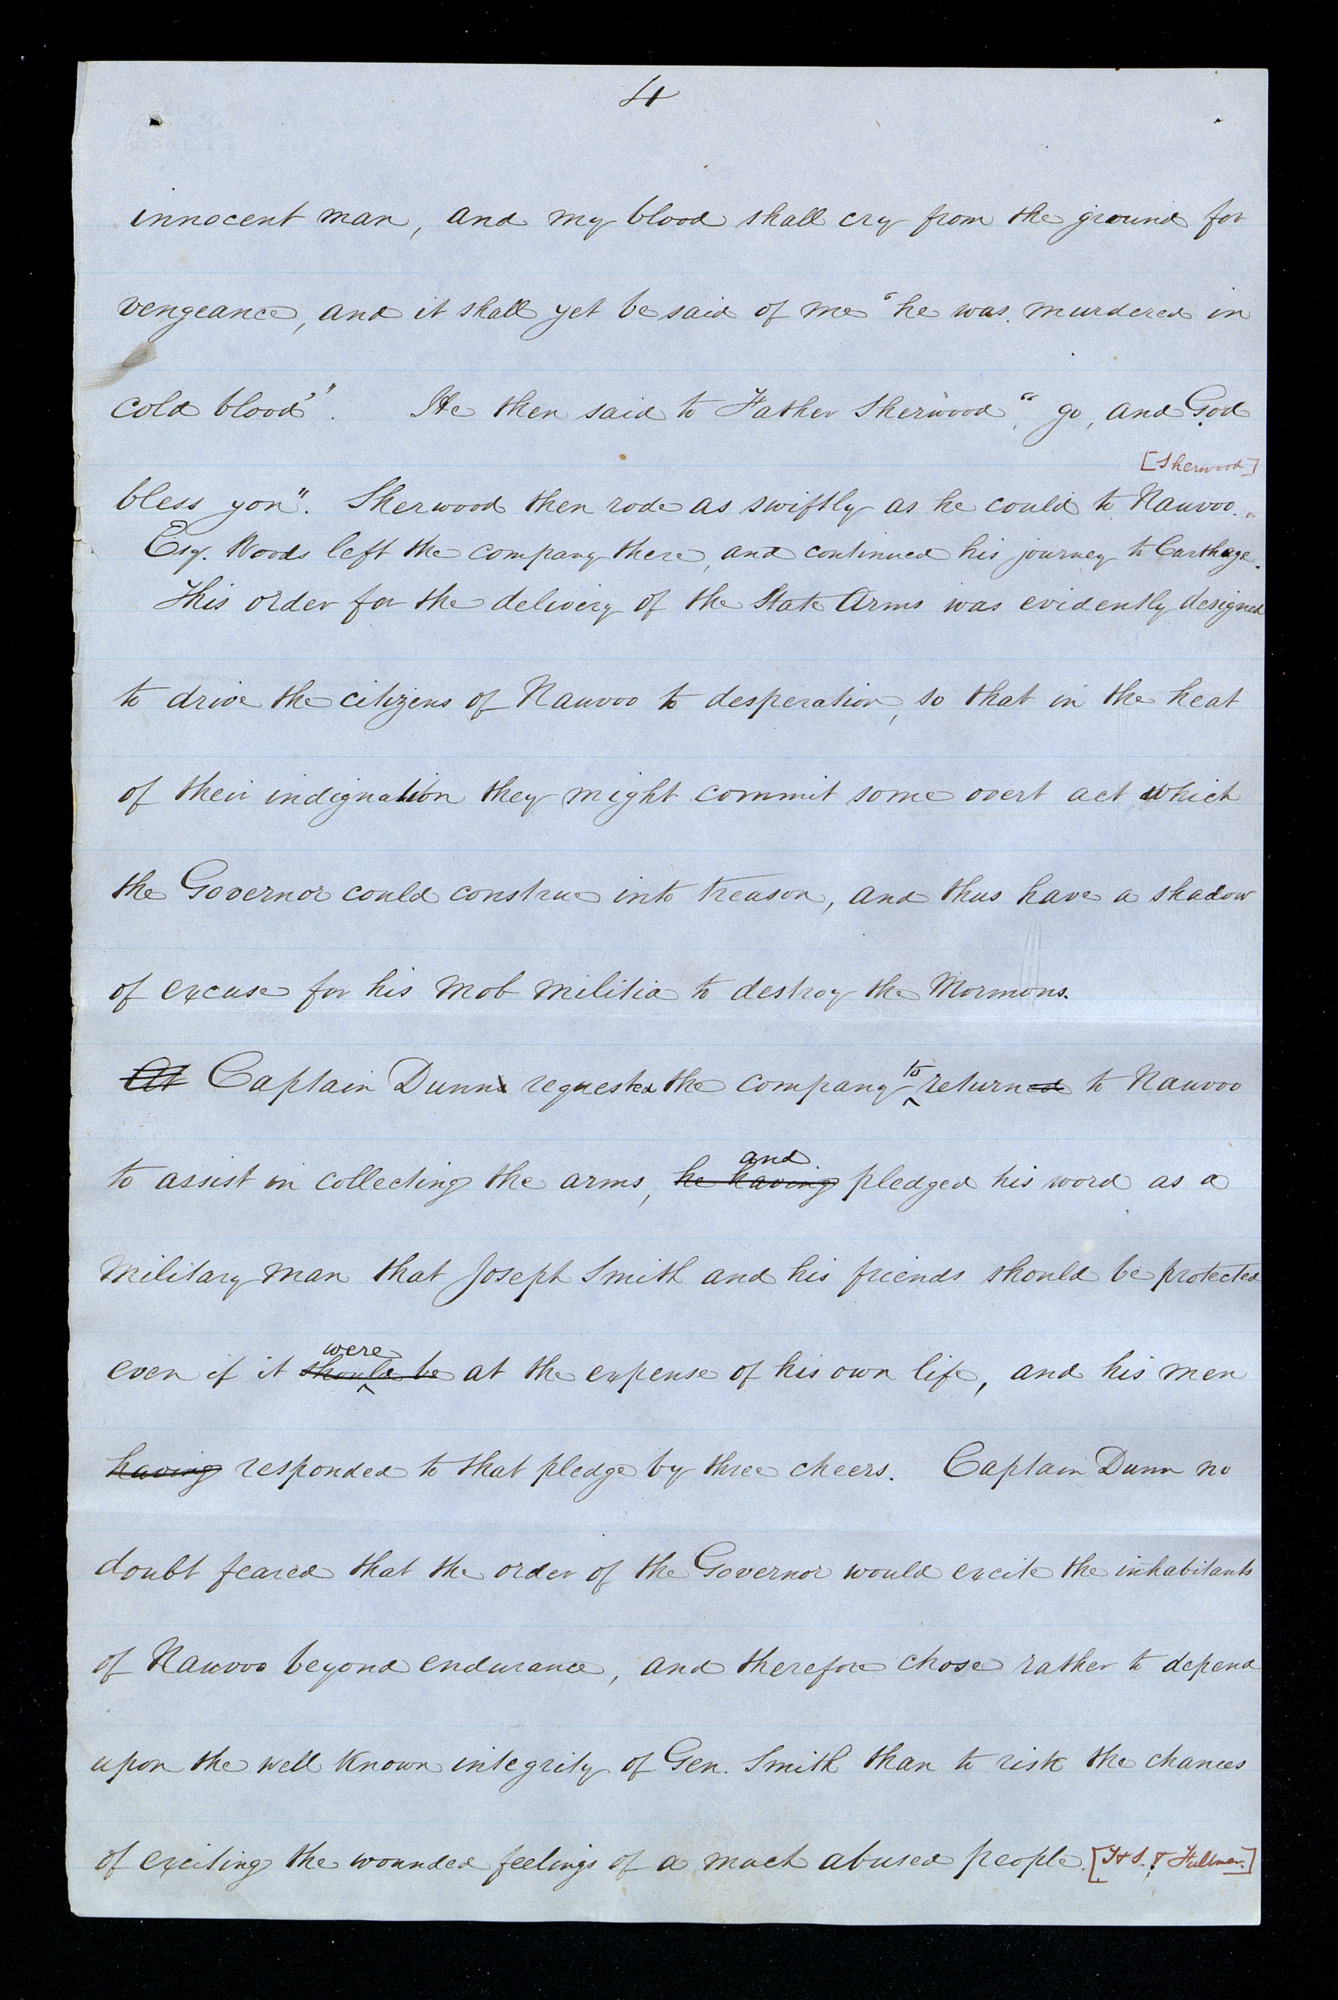 4
innocent man, and my blood shall cry from the ground for
vengeance, and it shall yet be said of me "he was murdered in
cold blood'". He then said to Father Sherwood, "go, and God
[Sherwood]
bless you". Sherwood then rode as swiftly as he could to Nauvoo.
Esq. Woods left the company there, and continued his journey to Carthage.
This order for the delivery of the State Arms was evidently designed
to drive the citizens of Nauvoo to desperation, so that in the heat
of their indignation they might commit some overt act which
the Governor could construe into treason, and thus have a shadow
of excuse for his mob militia to destroy the Mormons.
At Captain Dunn's requested the company to returned to Nauvoo
to assist in collecting the arms, he having and pledged his word as a
military man that Joseph Smith and his friends should be protected
even if it should be were at the expense of his own life, and his men
having responded to that pledge by three cheers. Captain Dunn no
doubt feared that the order of the Governor would excite the inhabitants
of Nauvoo beyond endurance, and therefore chose rather to depend
upon the well known integrity of Gen. Smith than to risk the chances
of exciting the wounded feelings of a much abused people. & Fullmer.]